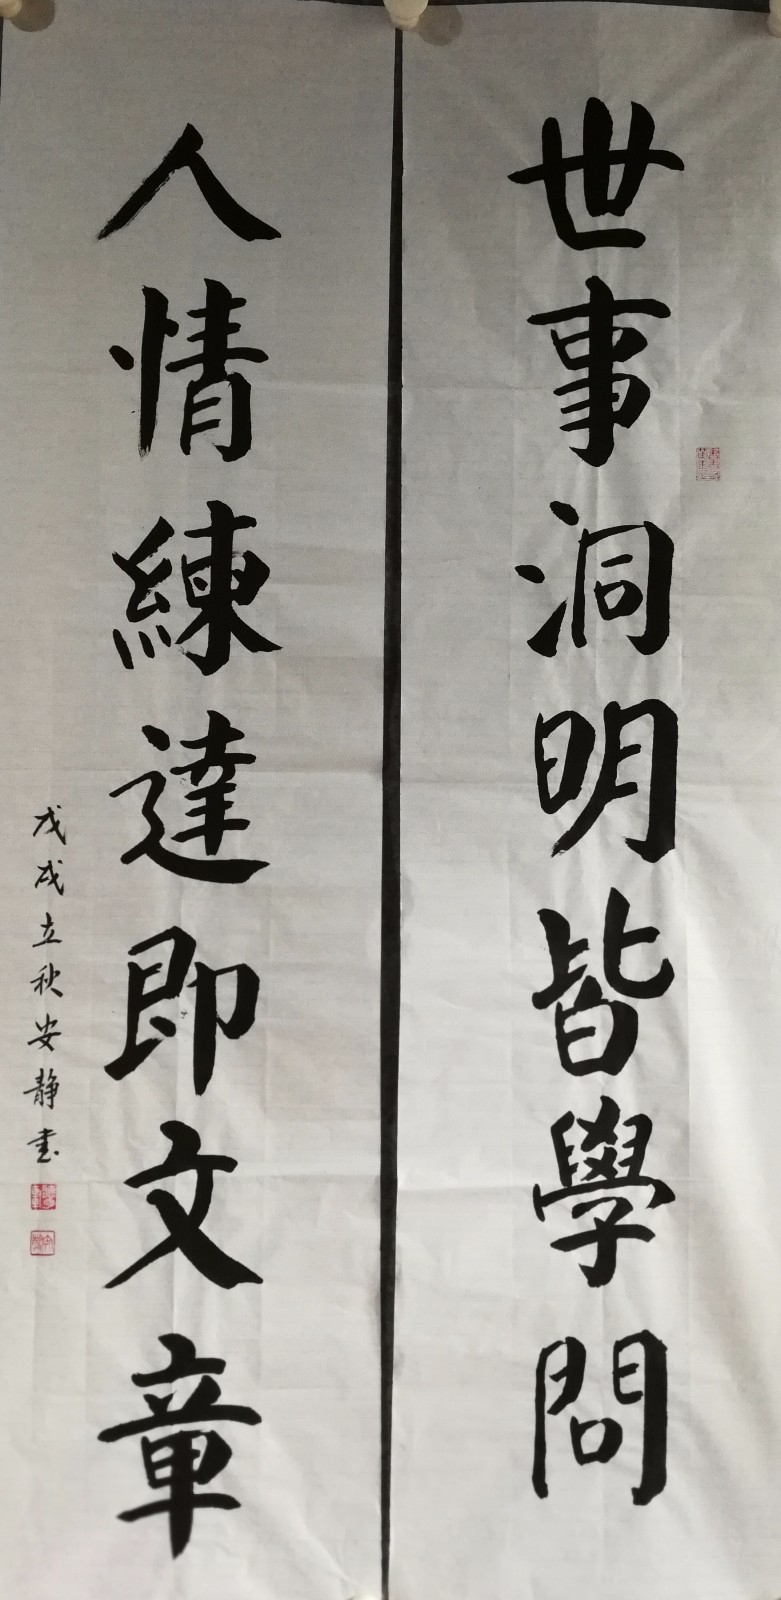 世事洞明皆學問
人情練達即文章
戊戌立秋安静书